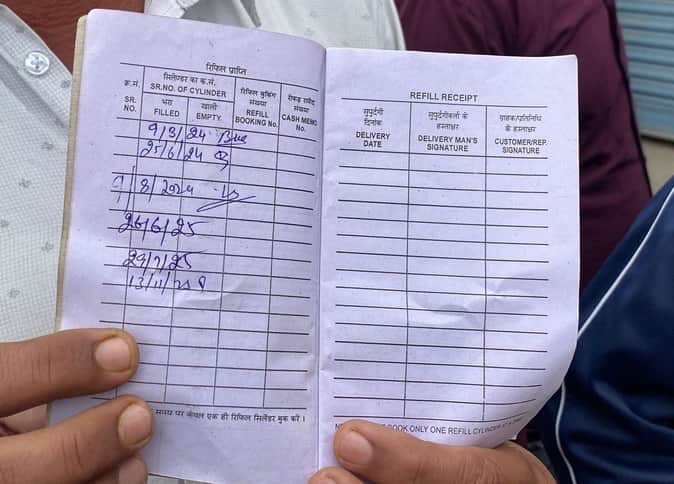 रिफिल प्राप्ति
क्र.सं. सिलेण्डर का क्र.सं. रिफिल बुकिंग संख्या रोकड़ रसीद संख्या
SR. NO. SR.NO. OF CYLINDER REFILL BOOKING No. CASH MEMO No.
भरा FILLED खाली EMPTY.
9/3/24
25/6/24
9/8/2024
26/6/25
29/7/25
13/11/
समय पर केवल एक ही रिफिल सिलेंडर बुक करें ।
REFILL RECEIPT
सुपुर्दगी दिनांक सुपुर्दगीकर्ता के हस्ताक्षर ग्राहक/प्रतिनिधि के हस्ताक्षर
DELIVERY DATE DELIVERY MAN'S SIGNATURE CUSTOMER/REP. SIGNATURE
BOOK ONLY ONE REFILL CYLINDER